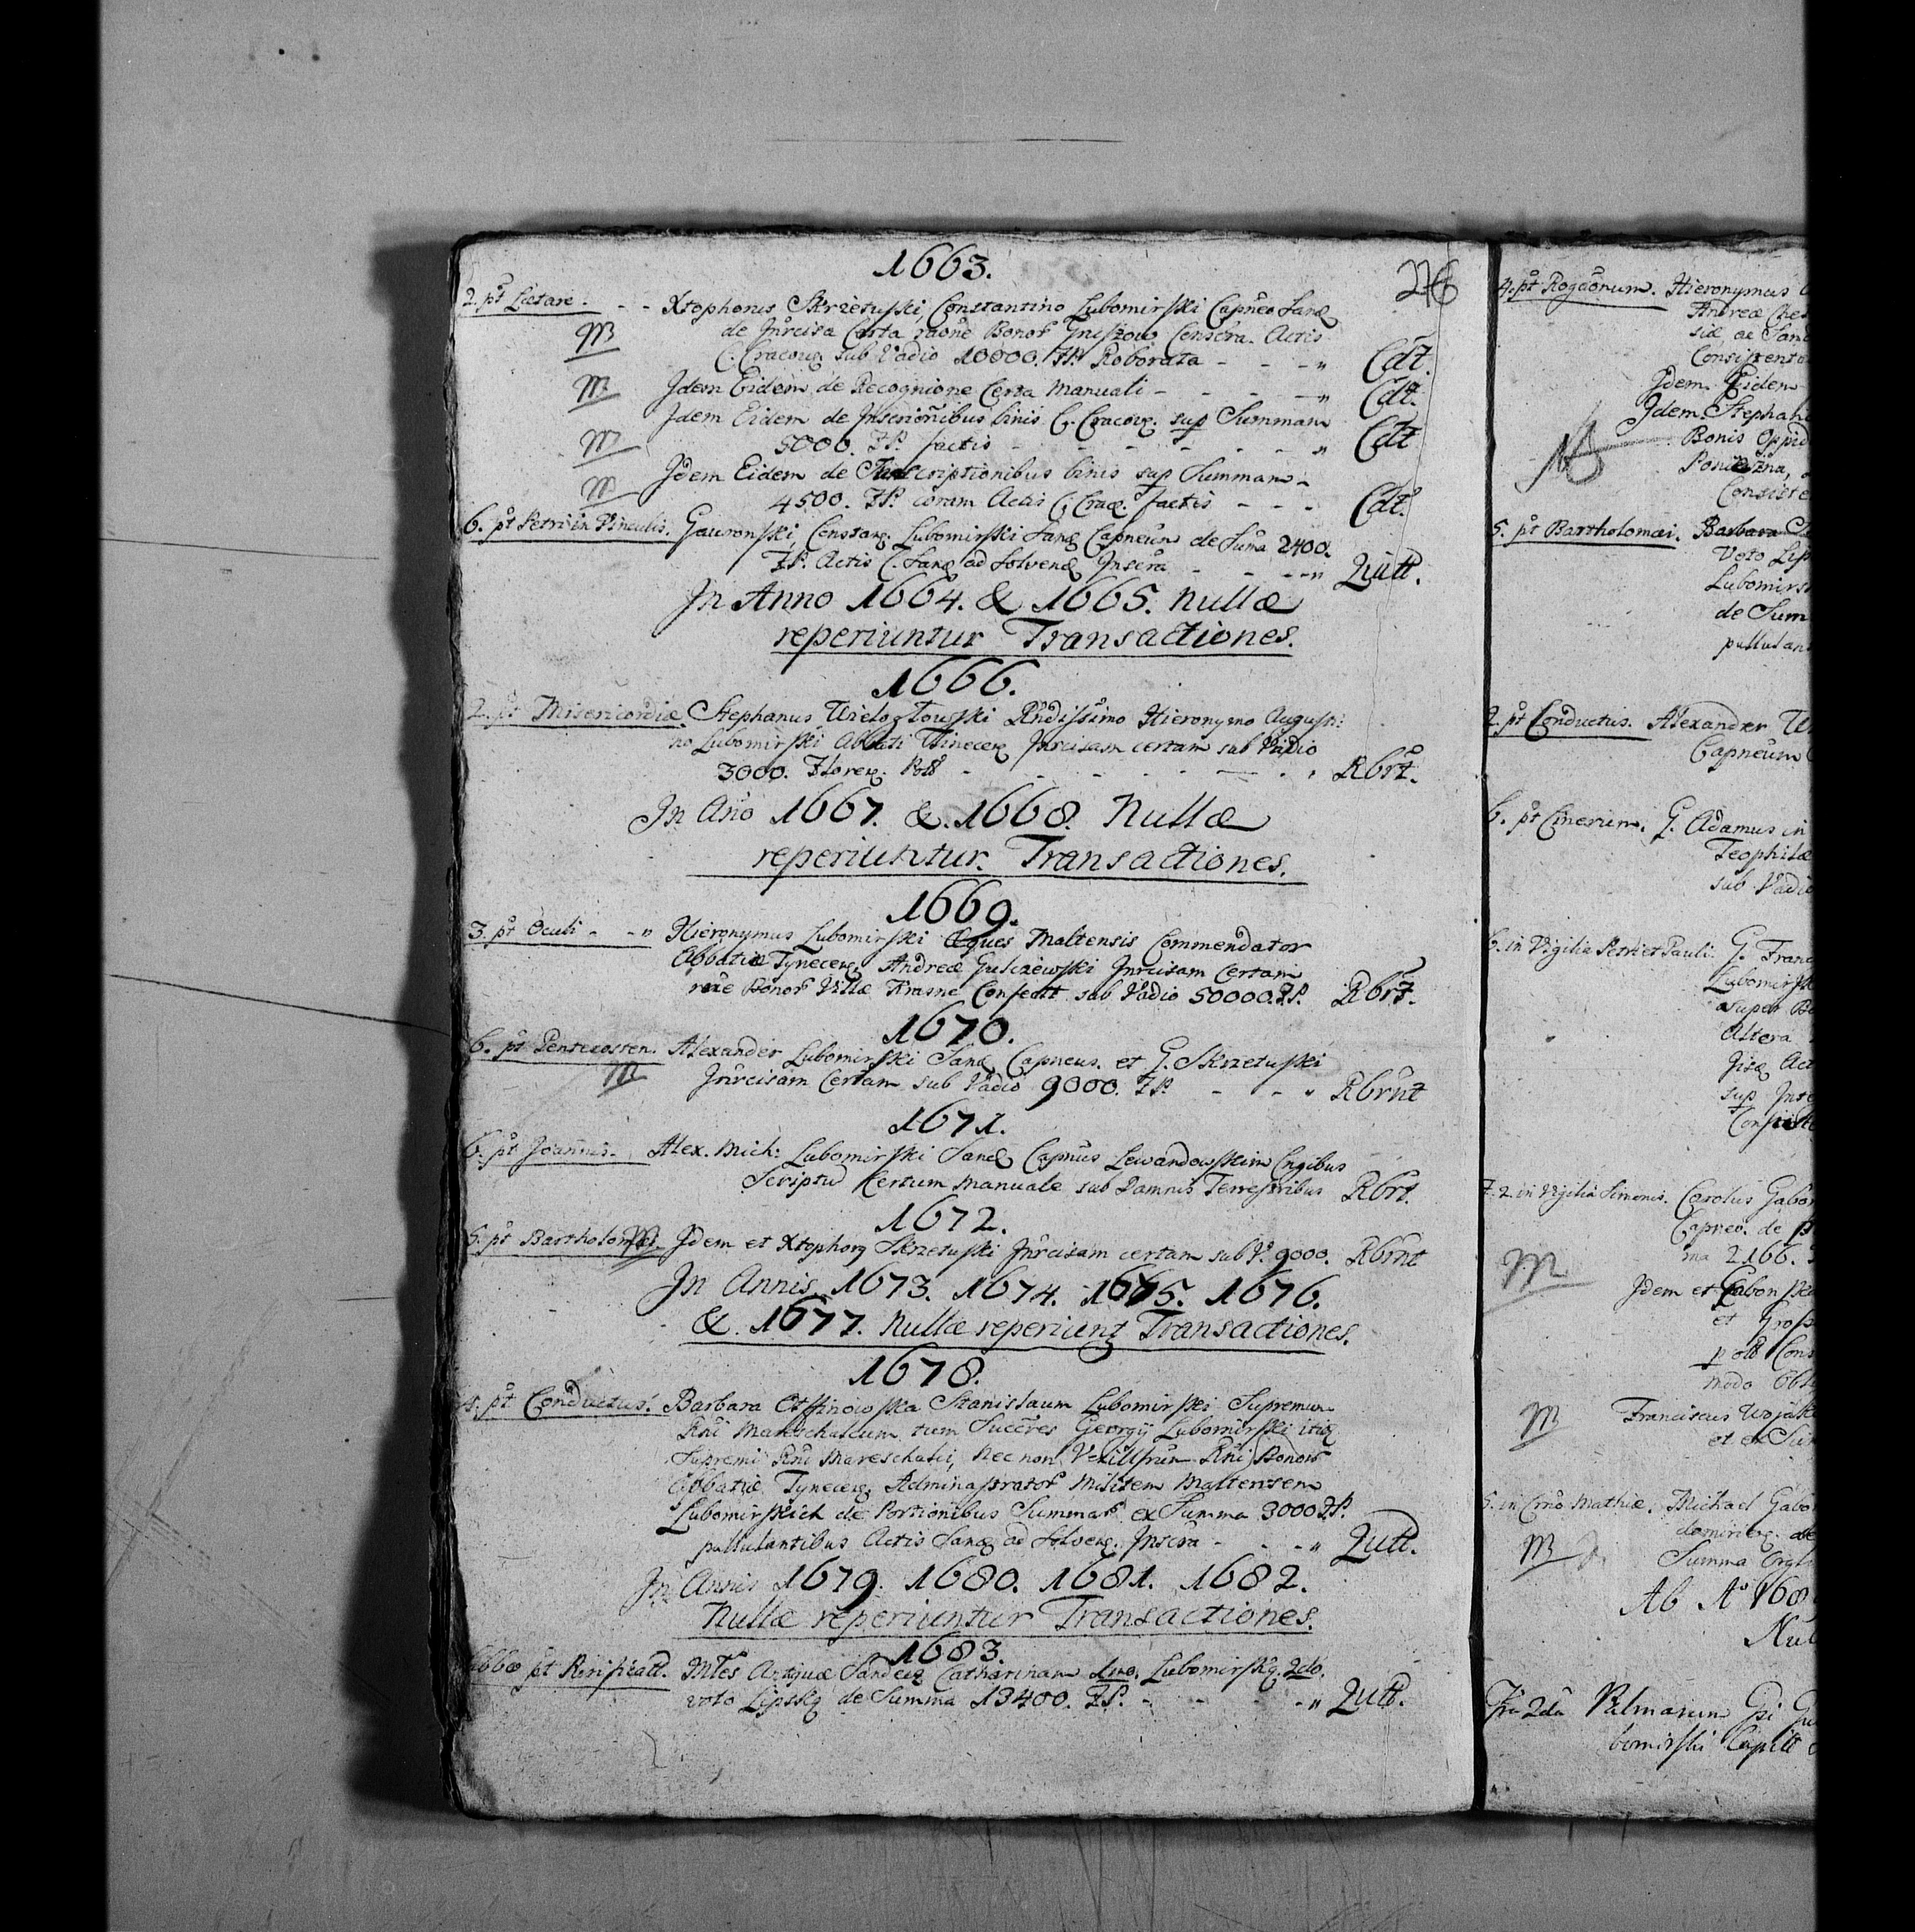 1663.
276
2. pt Lætare. - - Xtophorus Skrzetuski, Constantino Lubomirski Capneo Sand
de Inrcisa Certa raone Bonor Gniszow Conscra. Actis
C. Cracov. sub Vadio 10000. FP. Roborata - - - " Cdt.
M
M Idem Eidem de Recognione Certa Manuali - - - - " Cdt.
Idem Eidem de Inscrionibus binis C. Cracov. sup Summam
M 5000. FP. factis - - - - - - " Cdt
Idem Eidem de Inscriptionibus binis sup Summam
M 4500. FP. coram Actis C. Crac. factis - - - Cdt.
6. pt Petri in Vinculis. Gawronski, Constan. Lubomirski Sand Capneum de Suma 2400.
FP. Actis C. Sand ad Solvend Inscra - - - " Quitt.
In Anno 1664. & 1665. Nullæ
reperiuntur Transactiones.
1666.
2. pt Misericordiæ. Stephanus Wielogłowski Rndissimo Hieronymo Augusti:
no Lubomirski Abbati Tinecen Inrcisam certam sub Vadio
3000. Floren. Poll - - - - - - " Rbrt.
In Ano 1667. &. 1668. Nullæ
reperiuntur. Transactiones.
1669.
3. pt Oculi - - " Hieronymus Lubomirski Æques Maltensis Commendator
Abbatiæ Tynecen. Andreæ Gulczewski Inrcisam Certam
rne Bonor Villæ Krasne Confectt. sub Vadio 50000. FP. Rbrt.
1670.
6. pt Pentecosten. Alexander Lubomirski Sand Capneus. et G. Skrzetuski
M Inrcisam Certam sub Vadio 9000. FP. - - - " Rbrnt
1671.
6. pt Joannis. Alex. Mich: Lubomirski Sand Capnus Lewandowskim Cngibus
Scriptu Certum Manuale sub Damnis Terrestribus Rbrt.
1672.
5. pt Bartholomæi M Idem et Xtophorg Skrzetuski Inrcisam certam sub V. 9000. Rbrnt
In Annis. 1673. 1674. 1675. 1676.
&. 1677. Nullæ reperiunt Transactiones.
1678.
4. pt Conductus. Barbara Stanislaum Lubomirski Supremum
Rni Mareschalcum, tum Succres Georgij Lubomirski itid
Supremi Rni Mareschalci, nec non Vexillfrum Rni Bonor
Abbatiæ Tynecen. Administrator Militem Maltensem
Lubomirskich de Portionibus Summar ex Summa 3000 FP.
pullulantibus Actis Sand ad Solven. Inscra - - - " Quitt.
In Annis 1679. 1680. 1681. 1682.
Nullæ reperiuntur Transactiones.
1683.
Sabbo pt Purificatt. Mtes Antiquæ Sandecg Catharinam 1mo. Lubomirskg. 2do.
voto Lipskg de Summa 13400. FP. - - - - " Quitt.
4. pt Rogaonum. Hieronymus
Andreæ
siæ ac Sand
Idem Eidem
Idem Stephan
NB
Bonis Oppid
5. pt Bartholomæi. Barbara
Voto Lip
Lubomirs
de Sum
pullulan
2. pt Conductus. Alexander
Capneum
6. pt Cinerum. G. Adamus in
Teophilæ
sub Vadio
6. in Vigilia Petri et Pauli. G. Franc
Lubomirsk
super Bo
Altera
Act
sup Inte
7. 2. in Vigilia Simonis. Carolus Gabon
Capneo. de
ma 2166.
M
Idem et Gabonska
et Gross
poll Cons
modo Obl
M Franciscus Wojak
5. in Crno Mathiæ. Michael Gabo
M
Summa
Ab Ao 168
Nul
2da Palmarum
bomirski Capitt